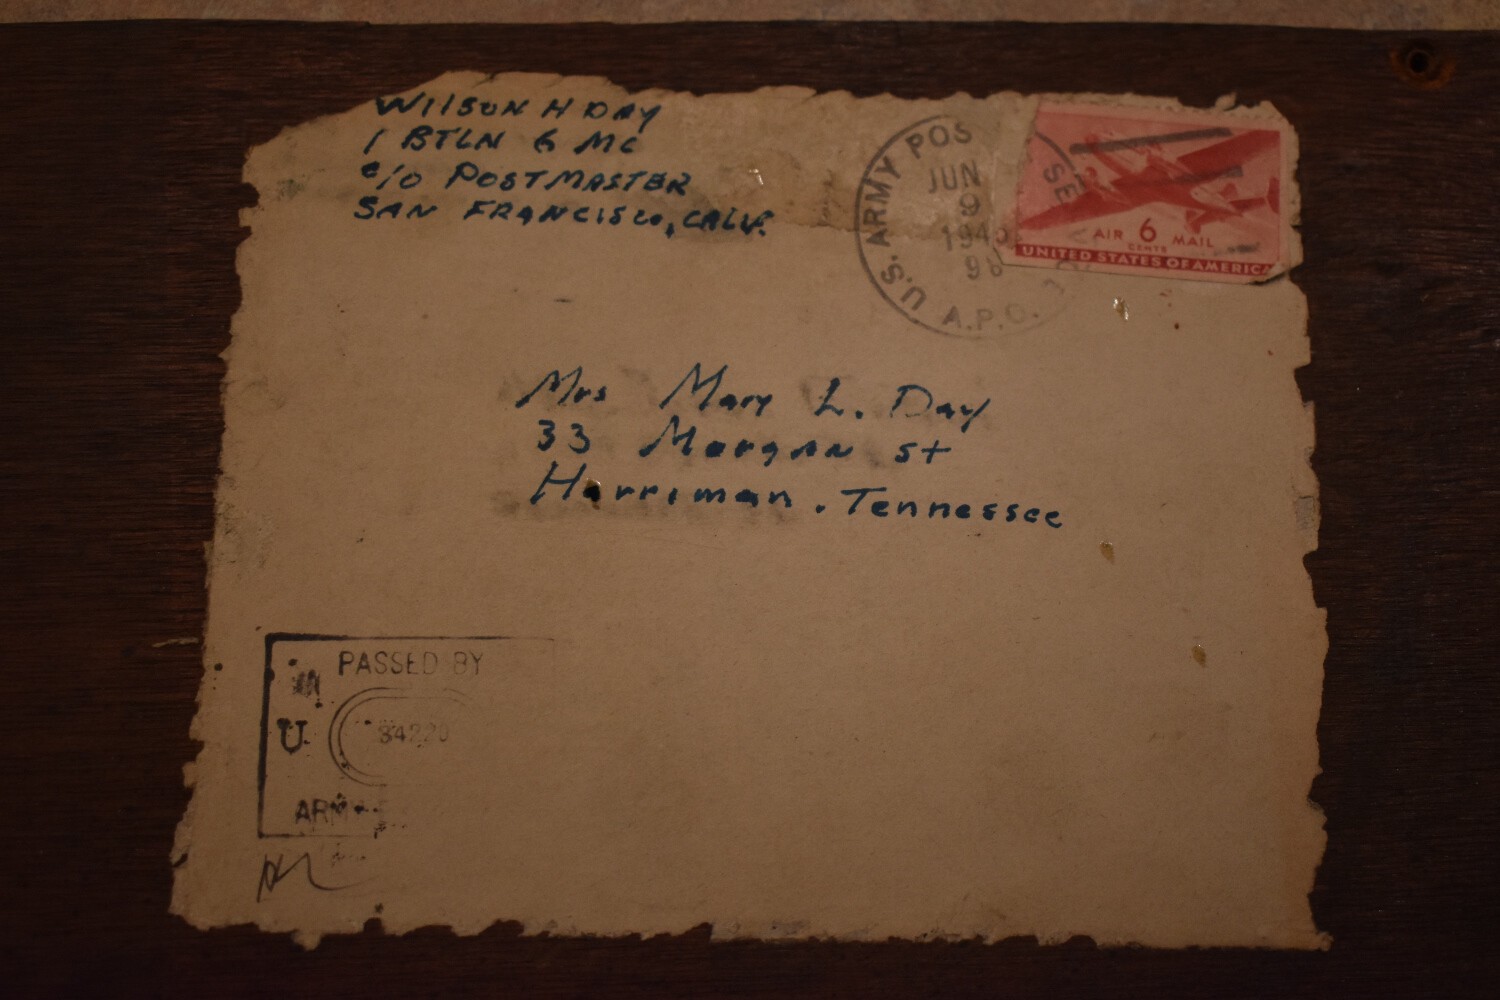 WILSON H DAY
1 BTLN 6 MC
c/o POSTMASTER
SAN FRANCISCO, CALIF.
U.S. ARMY POS SE
JUN
9
194
98
A.P.O.
AIR 6 MAIL
CENTS
UNITED STATES OF AMERICA
Mrs Mary L. Day
33 Morgan St
Harriman. Tennessee
PASSED BY
U
34220
ARM